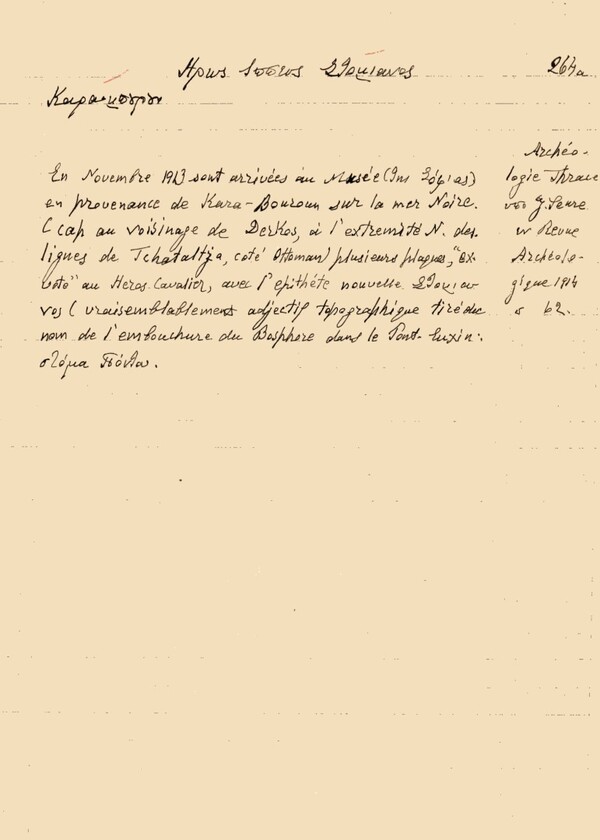 Ηρως Ιππευς Στομιανος 264α
Καραμπουρουν
En Novembre 1913 sont arrivées au Musée (της Σόφιας)
en provenance de Kara-Bouroun sur la mer Noire.
(cap au voisinage de Derkos, à l'extremité N. des
lignes de Tchataltja, coté Ottoman) plusieurs plaques, "ex-
voto" au Heros Cavalier, avec l'epithéte nouvelle Στομια-
νος (vraisemblablement adjectif topographique tiré du
nom de l'embouchure du Bosphore dans le Pont-Euxin:
στόμα Πόντου.
Archéo-
logie Thrace
υπο G. Seure
εν Revue
Archéolo-
gique 1914
σ 62.